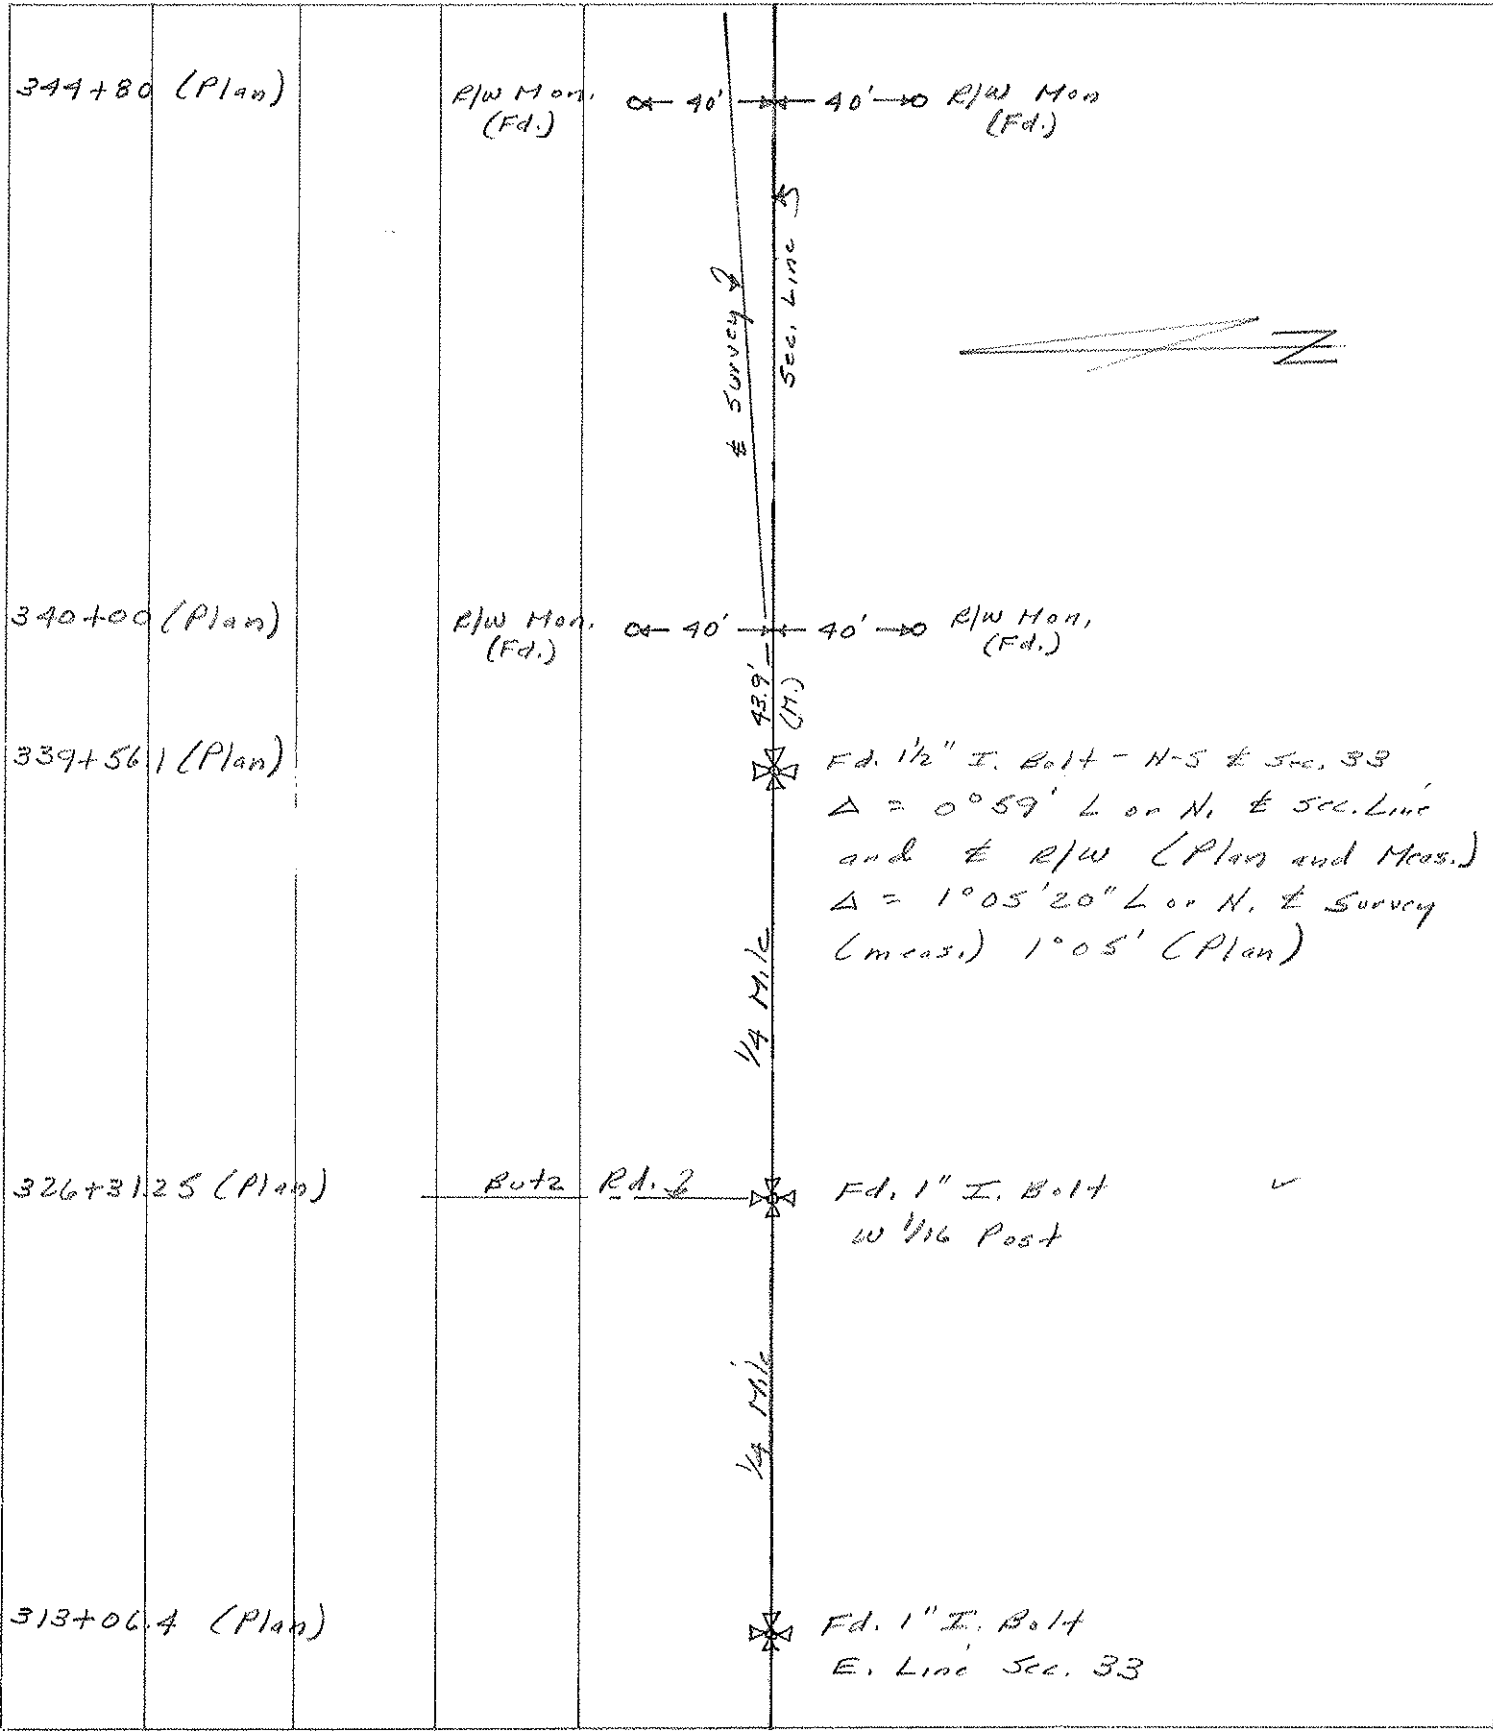 344+80 (Plan)
R/W Mon.
(Fd.)
40'
40'
R/W Mon
(Fd.)
℄ Survey
Sec. Line
N
340+00 (Plan)
R/W Mon.
(Fd.)
40'
40'
R/W Mon.
(Fd.)
43.9'
(M.)
339+56.1 (Plan)
Fd. 1½" I. Bolt - N-S ℄ Sec. 33
Δ = 0°59' L or N. ℄ Sec. Line
and ℄ R/W (Plan and Meas.)
Δ = 1°05'20" L or N. ℄ Survey
(meas.) 1°05' (Plan)
1/4 Mile
326+31.25 (Plan)
Butz Rd.
Fd. 1" I. Bolt
W 1/16 Post
1/4 Mile
313+06.4 (Plan)
Fd. 1" I. Bolt
E. Line Sec. 33